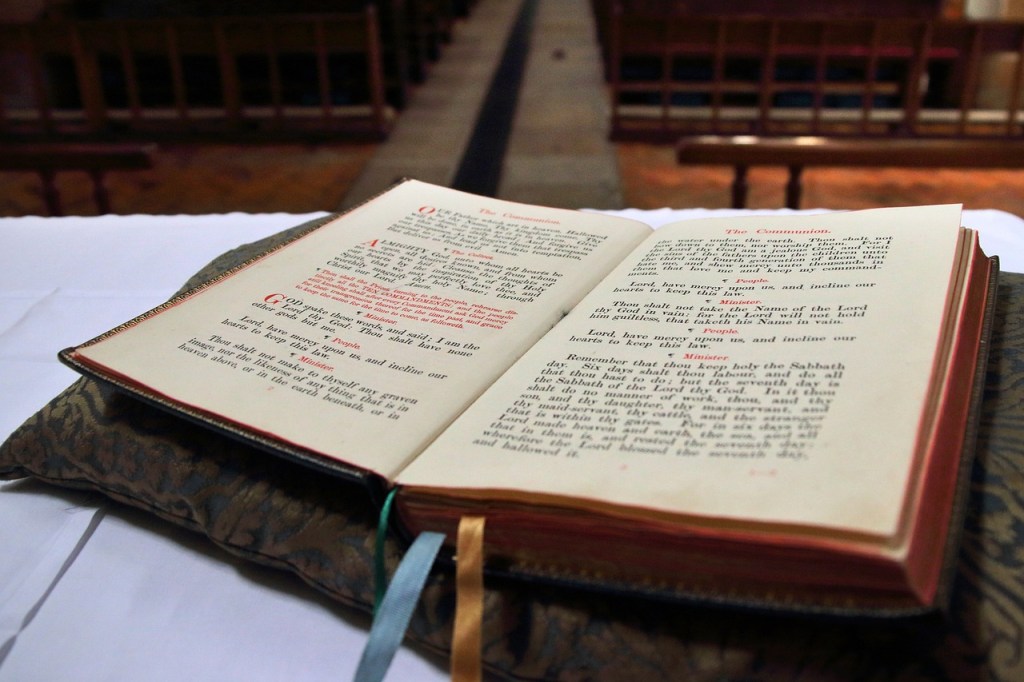 The Communion.
OUR Father which art in heaven, Hallowed
be thy Name. Thy
And forgive
temptation;
Amen.
The Collect.
ALMIGHTY God, unto whom all hearts be
open, all desires known, and from whom
no secrets are hid; Cleanse the thoughts of
our hearts by the inspiration of thy Holy
Spirit, that we may perfectly love thee, and
worthily magnify thy holy Name; through
Christ our Lord. Amen.
¶ Then shall the
the TEN COMMANDMENTS; and the people
after every Commandment ask God mercy
for the time past, and grace
for the time to come, as followeth.
Minister.
GOD spake these words, and said; I am the
Lord thy God: Thou shalt have none
other gods but me.
¶ People.
Lord, have mercy upon us, and incline our
hearts to keep this law.
¶ Minister.
Thou shalt not make to thyself any graven
image, nor the likeness of any thing that is in
heaven above, or in the earth beneath, or in
The Communion.
the water under the earth. Thou shalt not
bow down to them, nor worship them. For I
the Lord thy God am a jealous God, and visit
the sins of the fathers upon the children unto
the third and fourth generation of them that
hate me, and shew mercy unto thousands in
them that love me and keep my command-
ments.
¶ People.
Lord, have mercy upon us, and incline our
hearts to keep this law.
¶ Minister.
Thou shalt not take the Name of the Lord
thy God in vain: for the Lord will not hold
him guiltless, that taketh his Name in vain.
¶ People.
Lord, have mercy upon us, and incline our
hearts to keep this law.
¶ Minister.
Remember that thou keep holy the Sabbath
day. Six days shalt thou labour, and do all
that thou hast to do; but the seventh day is
the Sabbath of the Lord thy God. In it thou
shalt do no manner of work, thou, and thy
son, and thy daughter, thy man-servant, and
thy maid-servant, thy cattle, and the stranger
that is within thy gates. For in six days the
Lord made heaven and earth, the sea, and all
that in them is, and rested the seventh day:
wherefore the Lord blessed the seventh day,
and hallowed it.